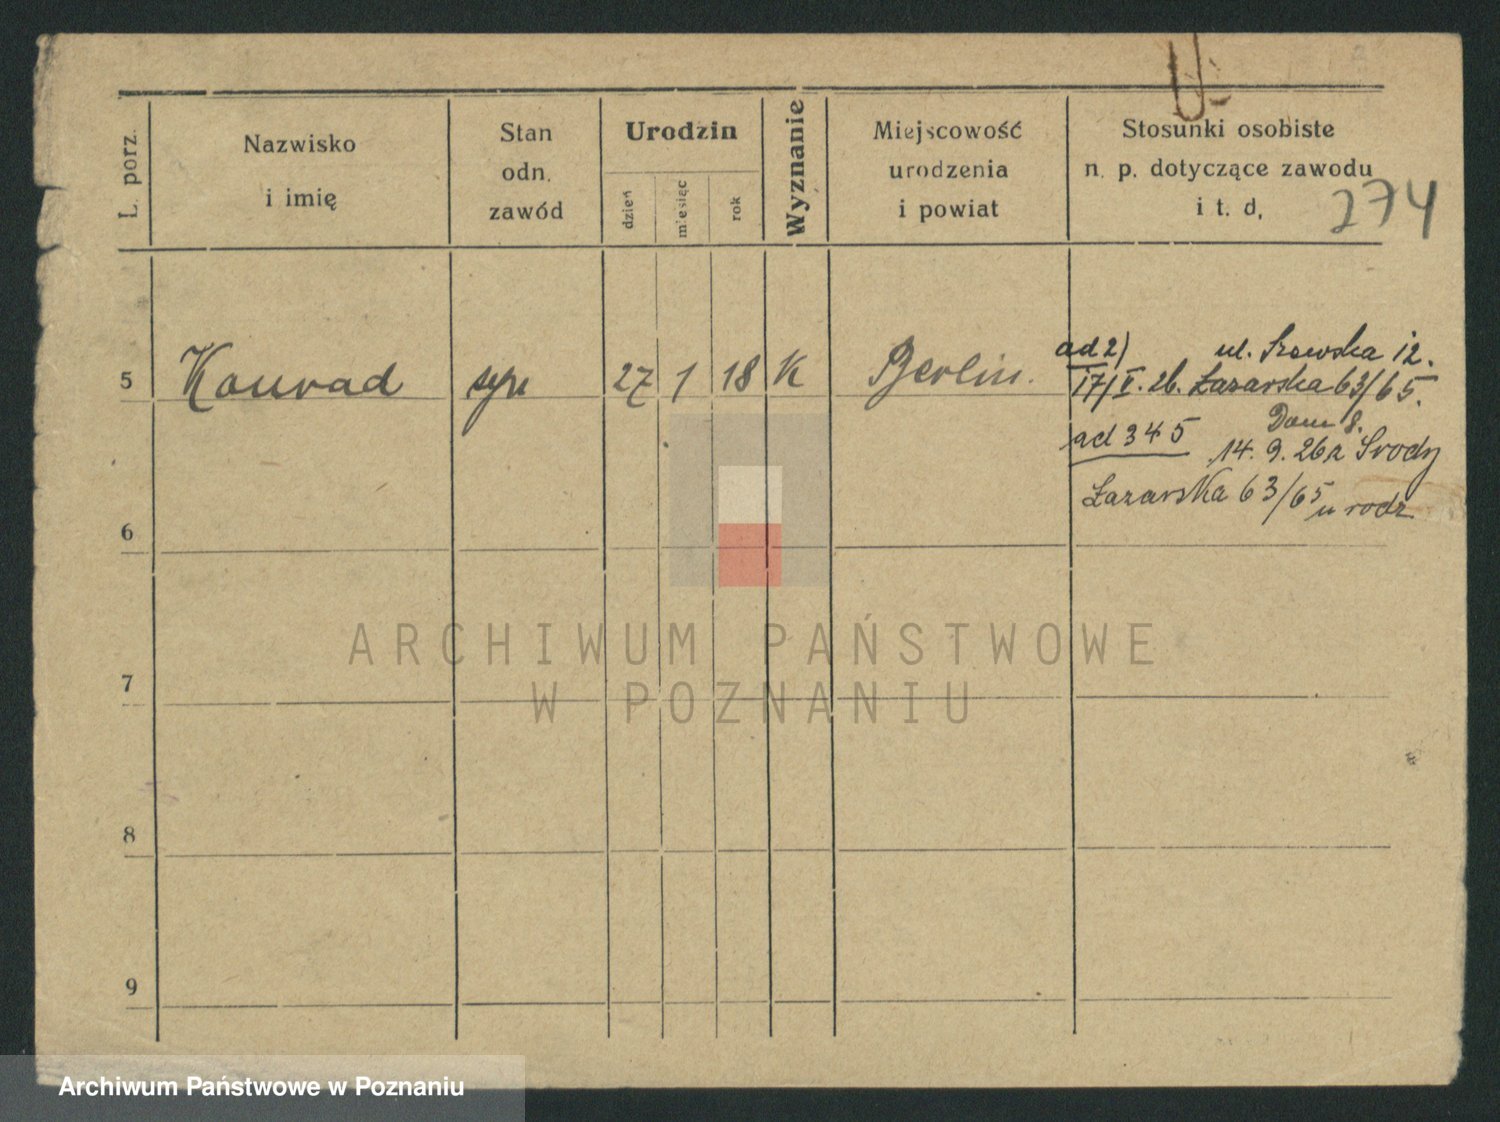 L. porz.
Nazwisko
i imię
Stan
odn.
zawód
Urodzin
dzień
miesiąc
rok
Wyznanie
Miejscowość
urodzenia
i powiat
Stosunki osobiste
n. p. dotyczące zawodu
i t. d.
274
5 Konrad syn 27 1 18 K Berlin.
ad 2) ul. 12.
17/V. 26. Łazarska 63/65.
Dom 8.
ad 3 4 5 14. 9. 26 Środy
Łazarska 63/65
u rodz
6
7
8
9
ARCHIWUM PAŃSTWOWE
W POZNANIU
Archiwum Państwowe w Poznaniu